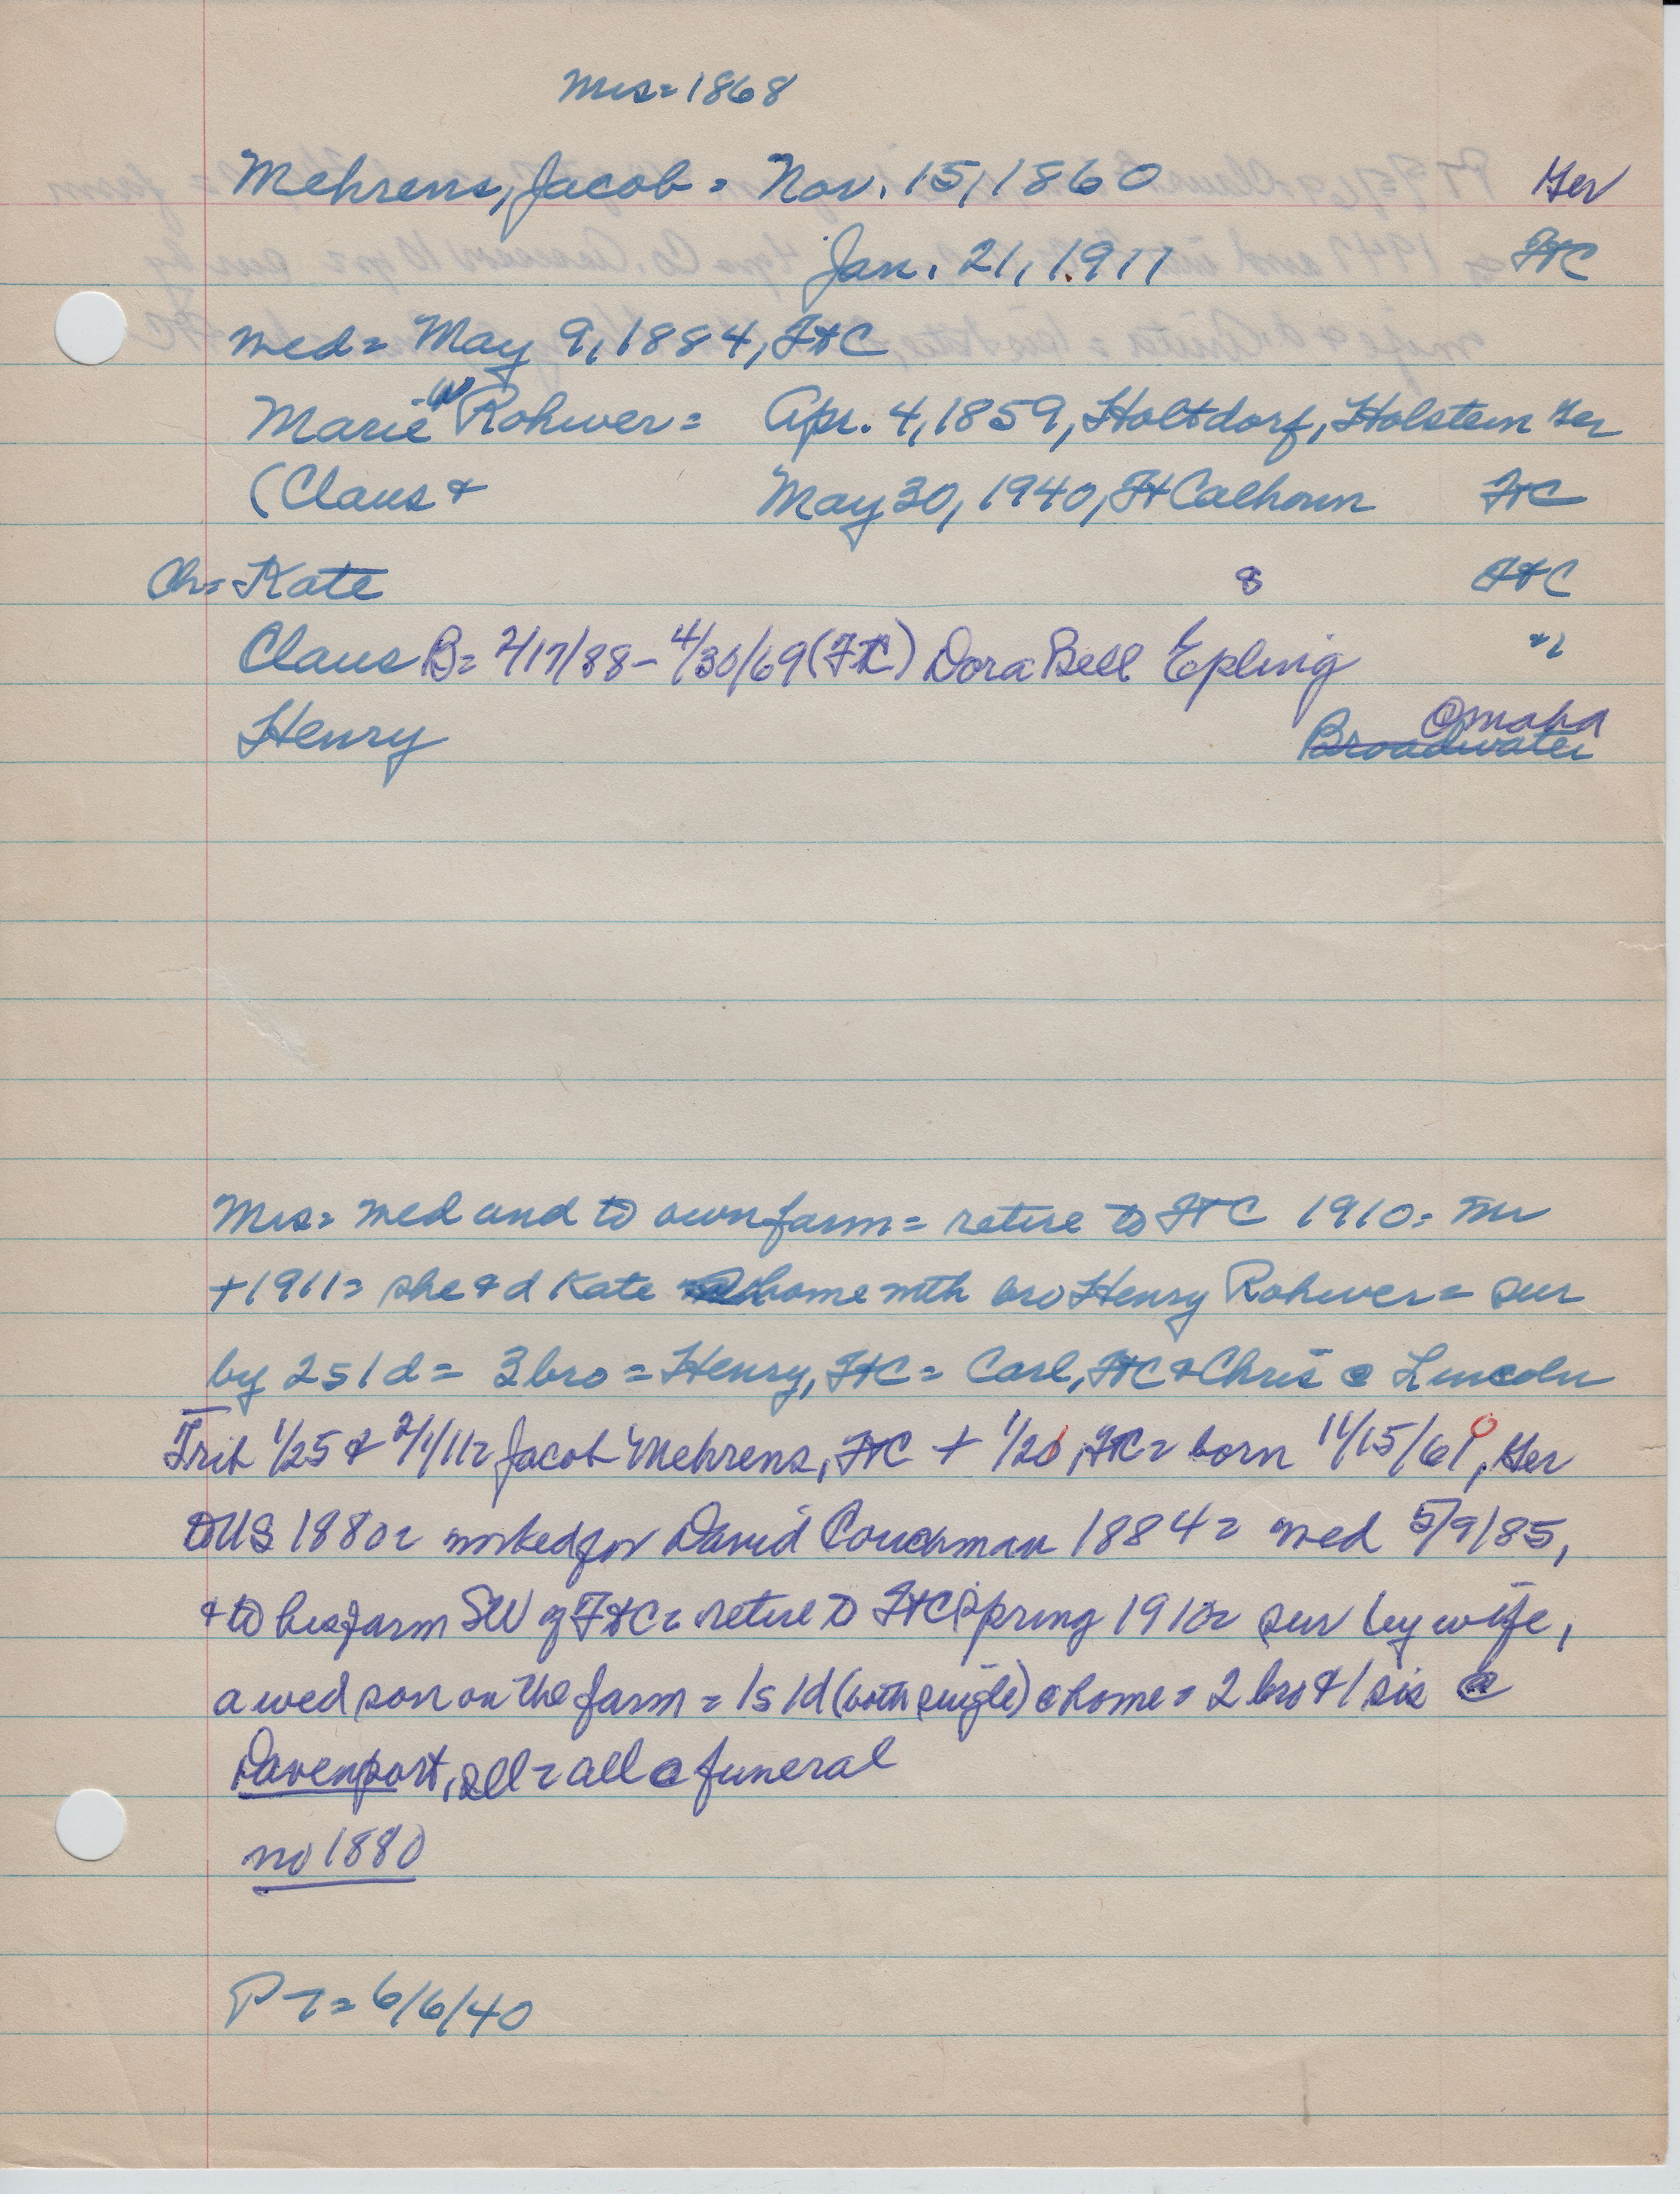 Mrs = 1868
Mehrens, Jacob = Nov. 15, 1860 Ger
Jan. 21, 1911 FtC
wed = May 9, 1884, FtC
Marie W Rohwer = Apr. 4, 1859, Holtdorf, Holstein Ger
(Claus + May 30, 1940, Ft Calhoun FtC
Ch = Kate 8 FtC
Claus B = 2/17/88 - 4/30/69 (FtC) Dora Bell Epling "
Omaha
Henry Broadwater
Mrs = wed and to own farm = retire to FtC 1910 = Mr
+ 1911 = she & d Kate home with bro Henry Rohwer = sur
by 2s 1d = 3 bro = Henry, FtC = Carl, FtC & Chris @ Lincoln
Trib 1/25 & 2/1/11 = Jacob Mehrens, FtC + 1/21, FtC = born 11/15/60, Ger
to US 1880 = worked for David Couchman 1884 = wed 5/9/85,
+ to his farm SW of FtC = retire to FtC Spring 1910 = sur by wife,
a wed son on the farm = 1s 1d (both single) @ home = 2 bro & 1 sis @
Davenport, = all @ funeral
no 1880
PT = 6/6/40